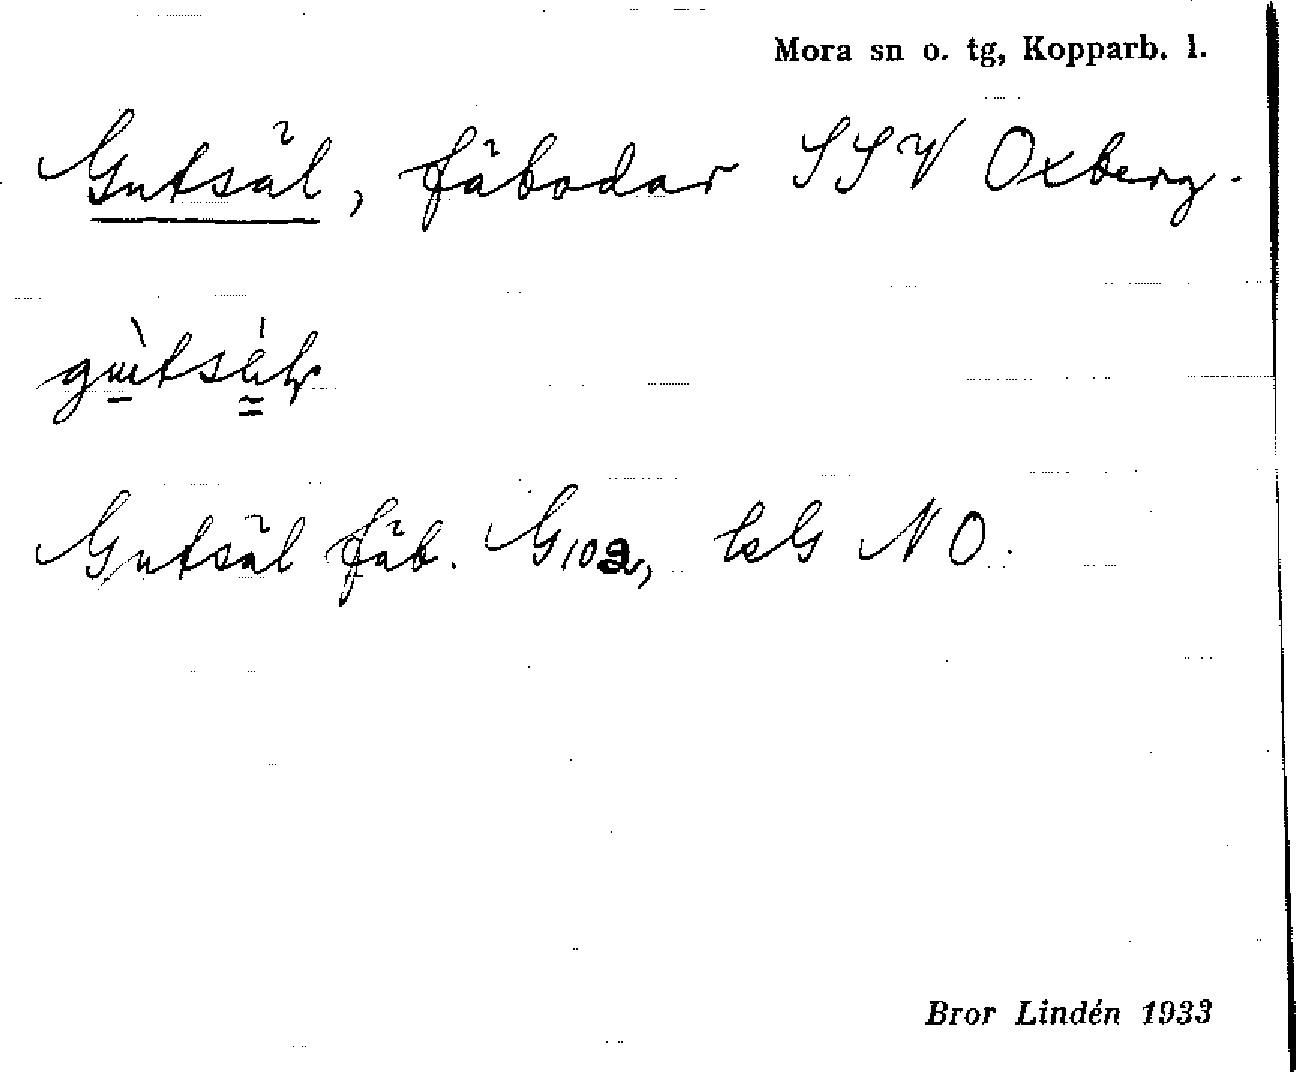 Mora sn o. tg, Kopparb. l.
Gutsäl, fäbodar SSV Oxberg.
Gutsäl fäb. G10a, bsG NO.
Bror Lindén 1933